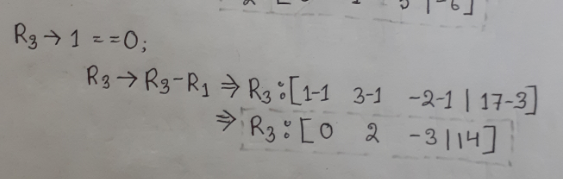 2 [ 0 1 5 | -6]
R₃ → 1 = =0;
R₃ → R₃-R₁ ⇒ R₃:[1-1 3-1 -2-1 | 17-3]
⇒ R₃:[0 2 -3 | 14]